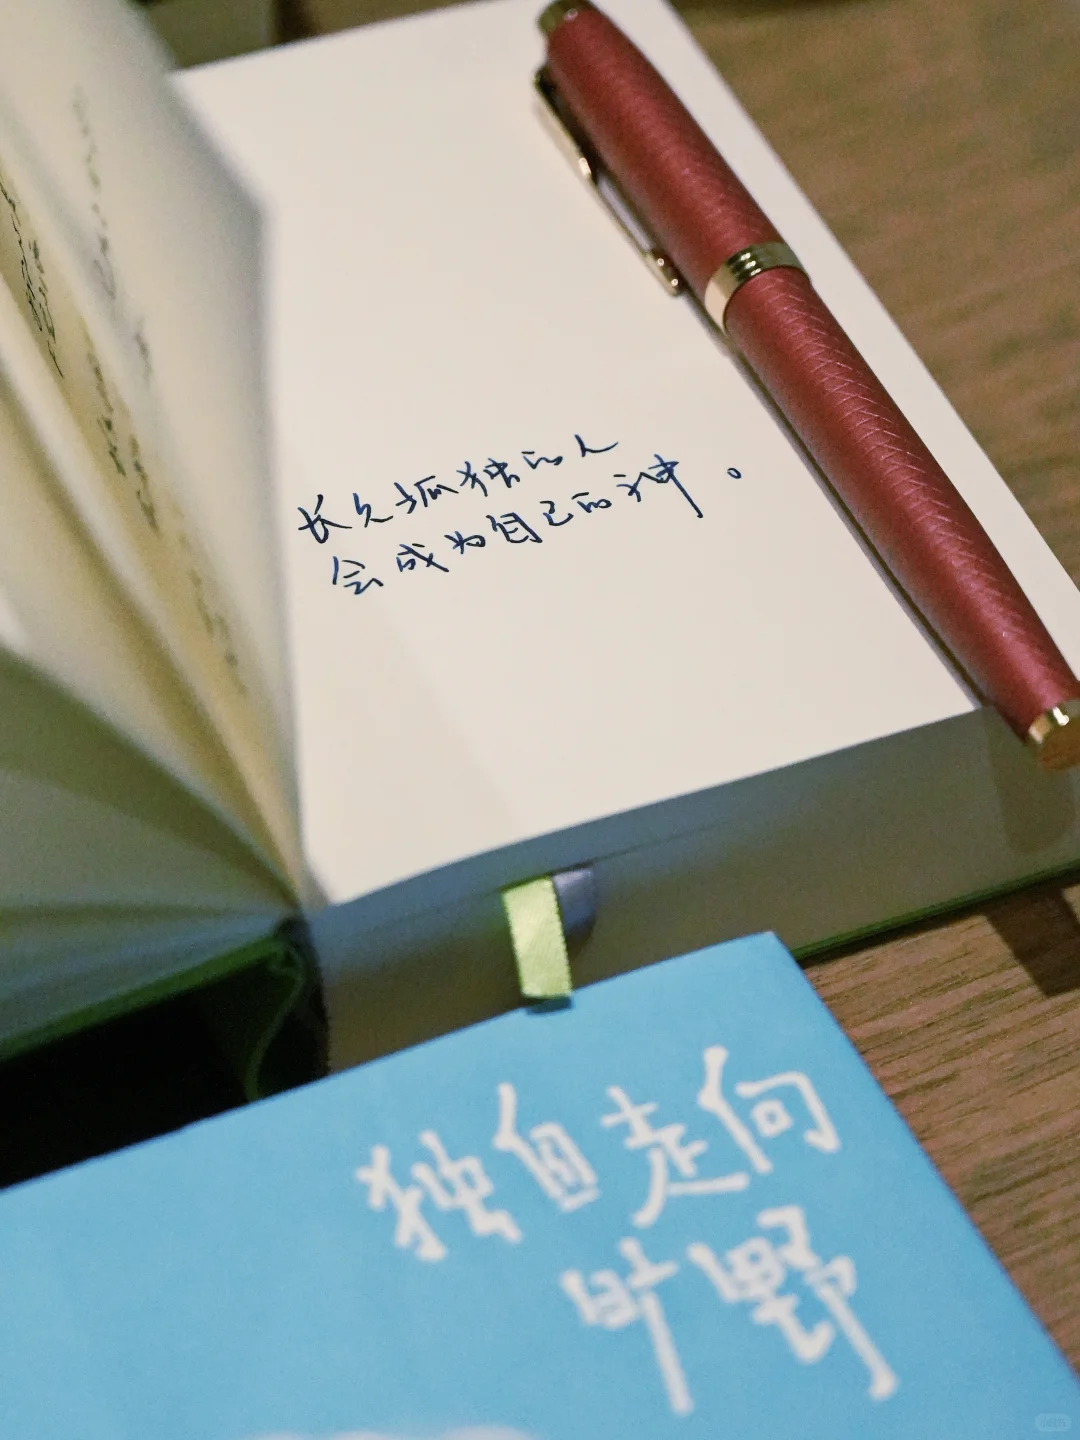 长久孤独的人
会成为自己的神。
独自走向
旷野